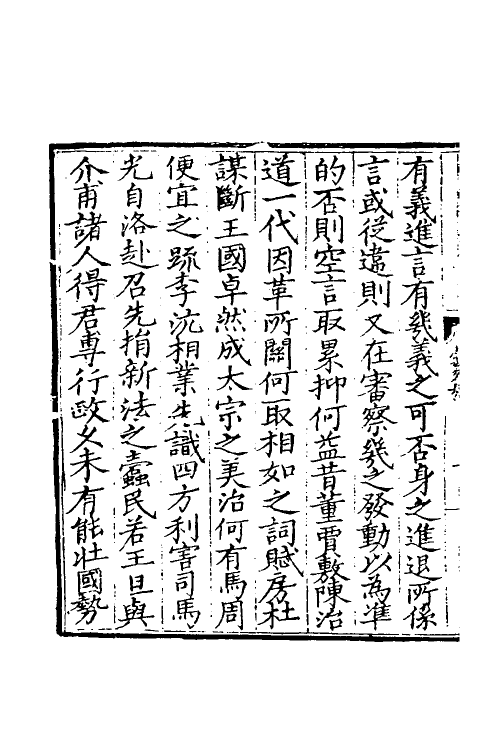 有義進言有幾義之可否身之進退所係
言或從違則又在審察幾之發動以為準
的否則空言取累抑何益昔董賈敷陳治
道一代因革所關何取相如之詞賦房杜
謀斷王國卓然成太宗之美治何有馬周
便宜之䟽李沆相業先識四方利害司馬
光自洛赴召先捐新法之蠹民若王旦與
介甫諸人得君專行政久未有能壯國勢